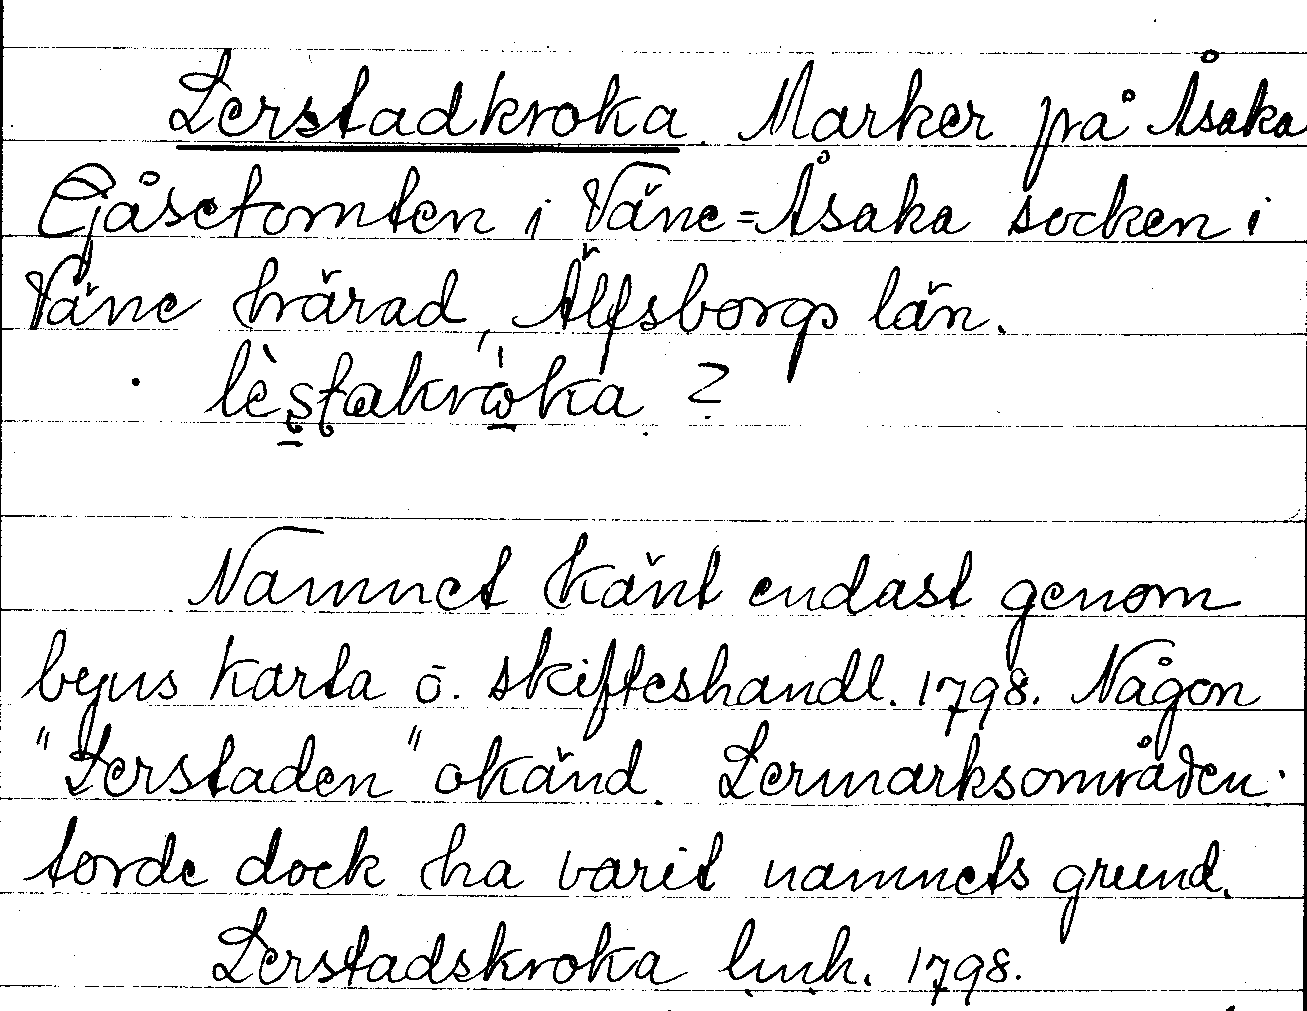 Lerstadkroka. Marker på Åsaka
Gjåsetomten i Väne=Åsaka socken i
Väne härad, Älfsborgs län.
lèstakròka ?
Namnet känt endast genom
byns karta o. skifteshandl. 1798. Någon
"Lerstaden" okänd. Lermarksområden
torde dock ha varit namnets grund.
Lerstadskroka lmh. 1798.